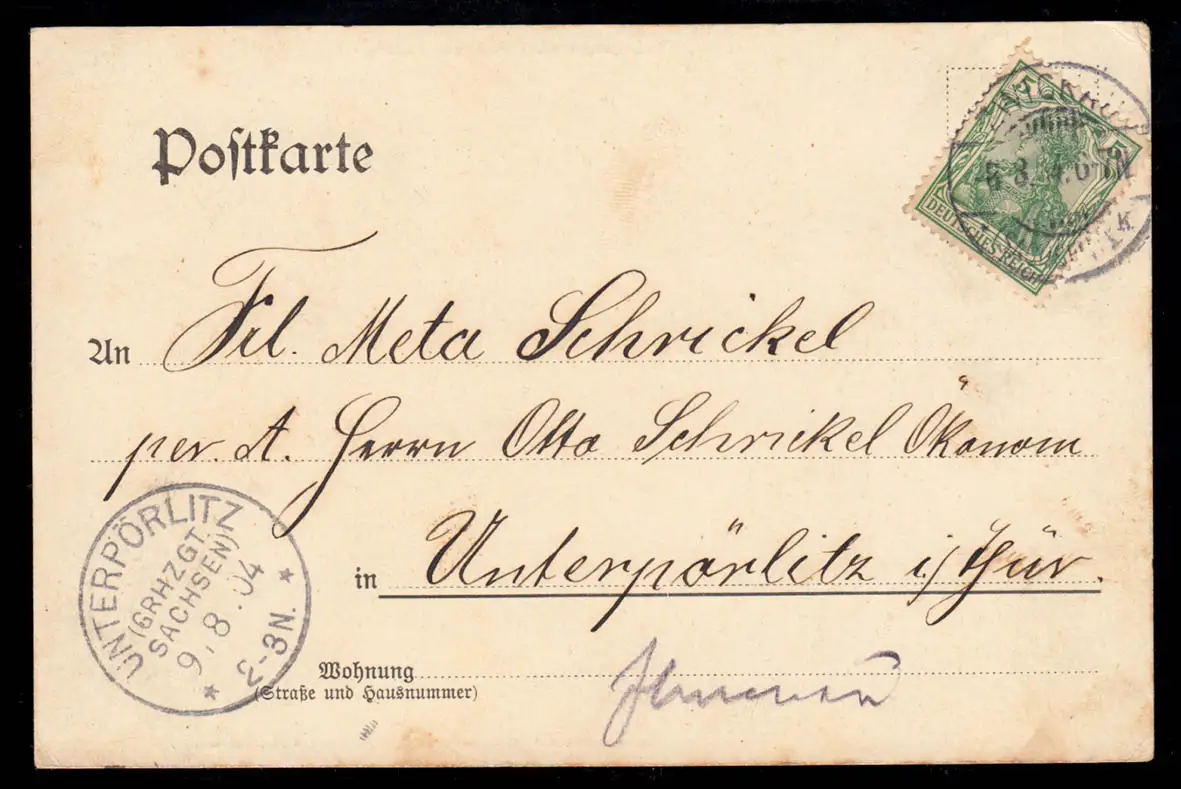 Postkarte
5 5
DEUTSCHES REICH
An Frl. Meta Schrickel
per. A. Herrn Otto Schrickel Ökonom
in Unterpörlitz i/Thür.
UNTERPÖRLITZ
(GRHZGT.
SACHSEN)
9.8.04
* 2-3N. *
Wohnung
(Straße und Hausnummer)
Ilmenau